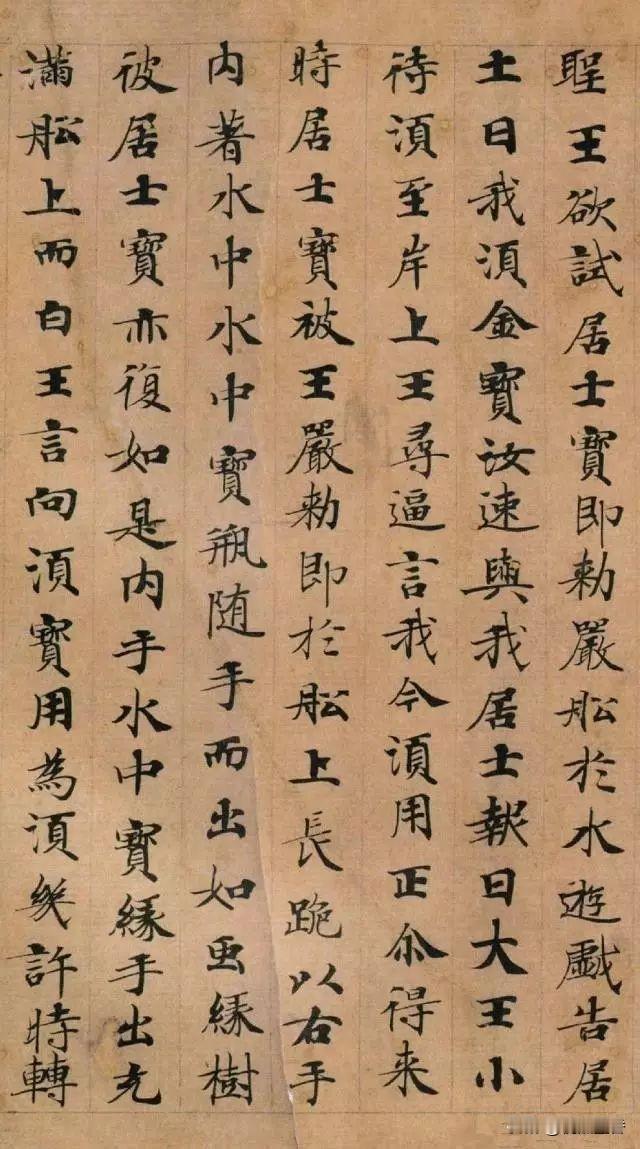 聖王欲試居士寶即勅嚴舩於水遊戲告居
士曰我湏金寶汝速與我居士報曰大王小
待湏至岸上王尋逼言我今湏用正尒得来
時居士寶被王嚴勅即於舩上長跪以右手
内著水中水中寶瓶随手而出如虫緣樹
彼居士寶亦復如是内手水中寶緣手出充
滿舩上而白王言向湏寶用為湏㡬許時轉